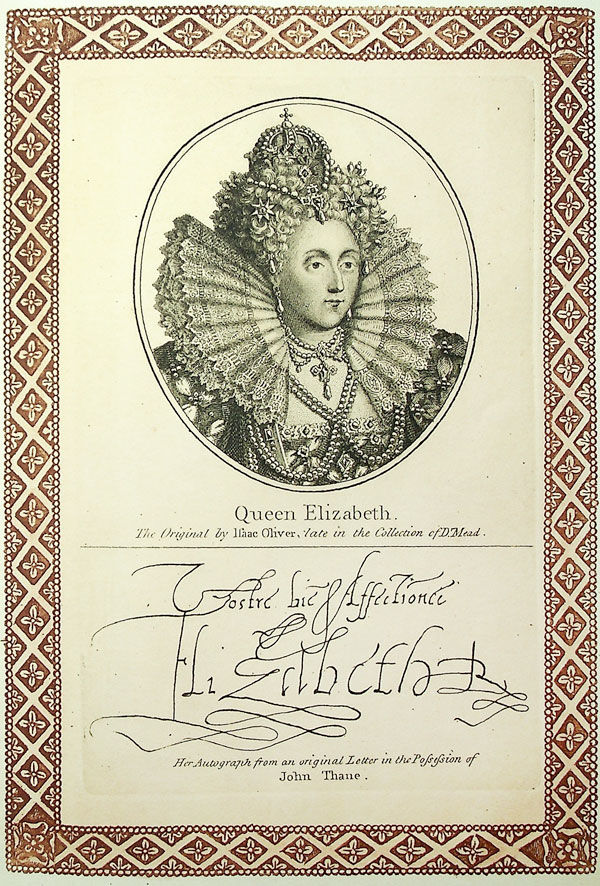 Queen Elizabeth.
The Original by Isaac Oliver, late in the Collection of Dr. Mead.
Vostre bie Affectionee
Elizabeth R
Her Autograph from an original Letter in the Possession of
John Thane.